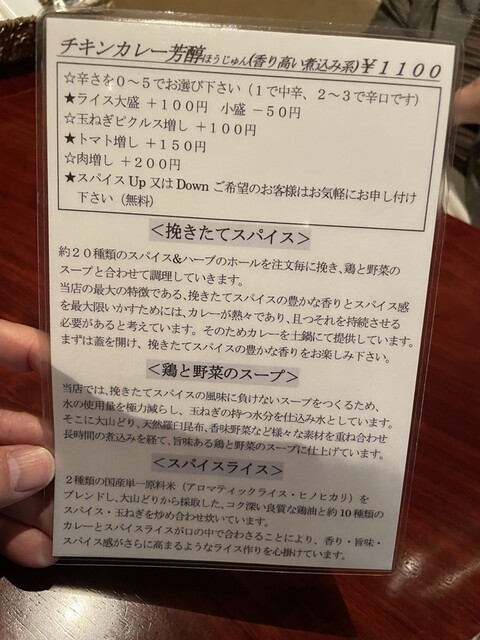 チキンカレー芳醇ほうじゅん(香り高い煮込み系)￥１１００
☆辛さを０～５でお選び下さい（１で中辛、２～３で辛口です）
★ライス大盛 ＋１００円　小盛 －５０円
☆玉ねぎピクルス増し ＋１００円
★トマト増し ＋１５０円
☆肉増し ＋２００円
★スパイス Up 又は Down ご希望のお客様はお気軽にお申し付け
下さい（無料）
＜挽きたてスパイス＞
約２０種類のスパイス&ハーブのホールを注文毎に挽き、鶏と野菜の
スープと合わせて調理していきます。
当店の最大の特徴である、挽きたてスパイスの豊かな香りとスパイス感
を最大限いかすためには、カレーが熱々であり、且つそれを持続させる
必要があると考えています。そのためカレーを土鍋にて提供しています。
まずは蓋を開け、挽きたてスパイスの豊かな香りをお楽しみ下さい。
＜鶏と野菜のスープ＞
当店では、挽きたてスパイスの風味に負けないスープをつくるため、
水の使用量を極力減らし、玉ねぎの持つ水分を仕込み水としています。
そこに大山どり、天然羅臼昆布、香味野菜など様々な素材を重ね合わせ
長時間の煮込みを経て、旨味ある鶏と野菜のスープに仕上げています。
＜スパイスライス＞
２種類の国産単一原料米（アロマティックライス・ヒノヒカリ）を
ブレンドし、大山どりから採取した、コク深い良質な鶏油と約１０種類の
スパイス・玉ねぎを炒め合わせ炊いています。
カレーとスパイスライスが口の中で合わさることにより、香り・旨味・
スパイス感がさらに高まるようなライス作りを心掛けています。